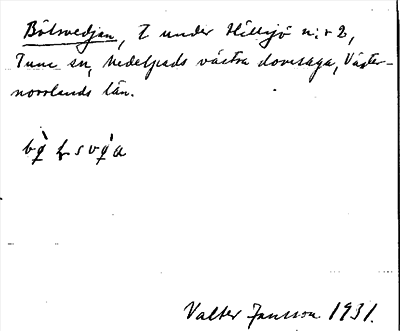 Bölsvedjan, t under Hillsjö n:r 2,
Tuna sn, Medelpads västra domsaga, Väster-
norrlands län.
Valter Jansson 1931.